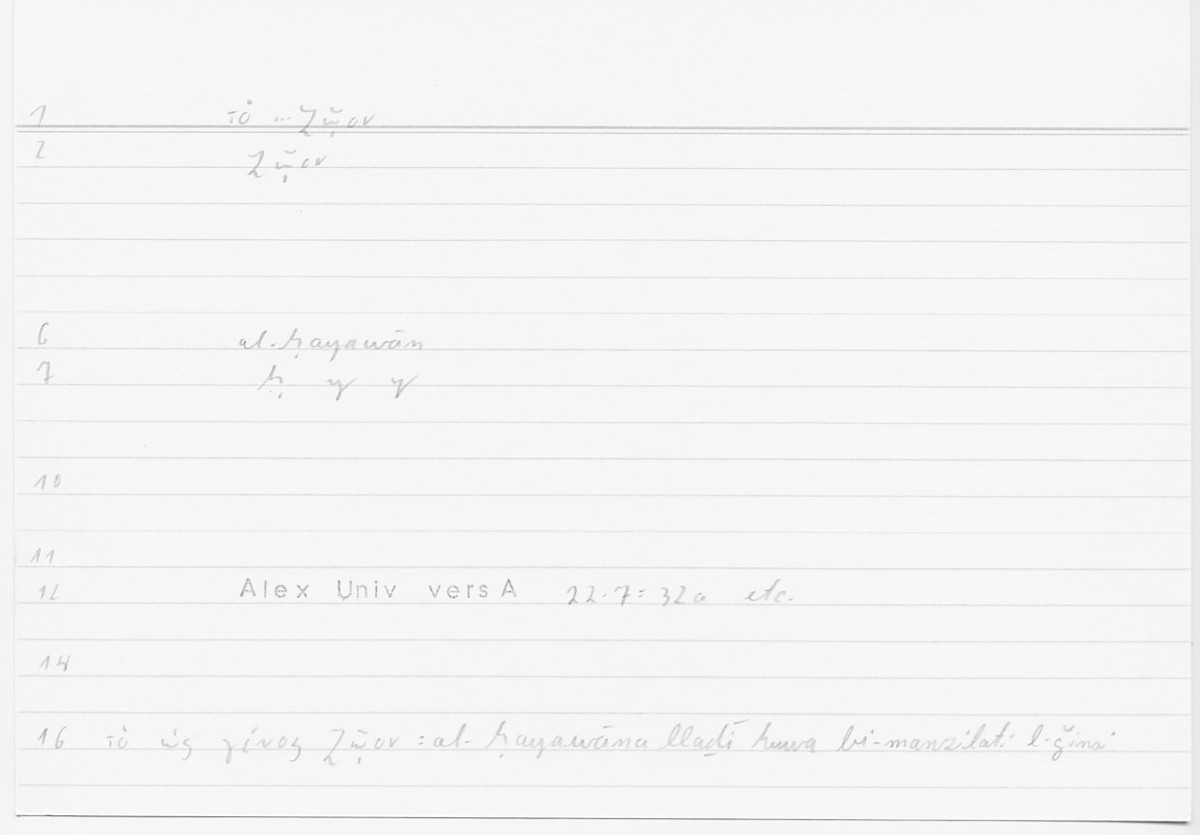 1 τὸ ... ζῷον
2 ζῷον
6 al-ḥayawān
7 ḥ y y
10
11
12 Alex Univ vers A 22.7 = 32a etc.
14
16 τὸ ὡς γένος ζῷον = al-ḥayawāna llaḏī huwa bi-manzilati l-ǧinsi